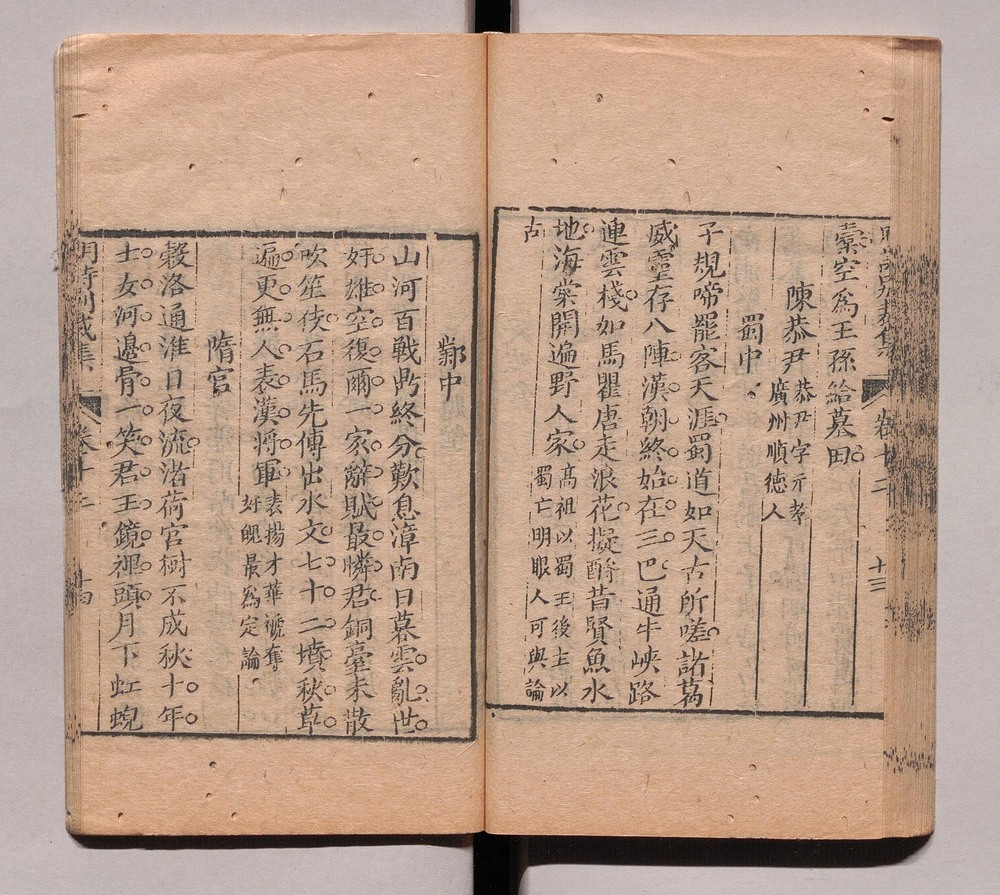 卷十二 十三
橐空為王孫給墓田
陳恭尹
恭尹字元孝
廣州順德人
蜀中
子規啼罷客天涯蜀道如天古所嗟諸葛
威靈存八陣漢朝終始在三巴通牛峽路
連雲棧如馬瞿唐走浪花擬酹昔賢魚水
地海棠開遍野人家
高祖以蜀王後主以
蜀亡明眼人可與論
古
鄴中
山河百戰鼎終分歎息漳南日暮雲亂世
奸雄空復爾一家辭賦最憐君銅臺未散
吹笙伎石馬先傳出水文七十二墳秋草
遍更無人表漢將軍
表揚才華褫奪
奸魄最為定論
隋宮
穀洛通淮日夜流渚荷宮樹不成秋十年
士女河邊骨一笑君王鏡裡頭月下虹蜺
明詩別裁集 卷十二 十四